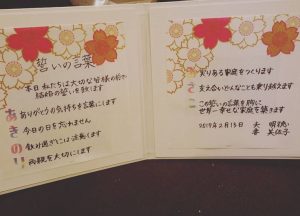 誓いの言葉
本日 私たちは大切な皆様の前で
結婚の誓いを致します
ありがとうの気持ちを言葉にします
今日の日を忘れません
飲み過ぎには注意します
両親を大切にします
実りある家庭をつくります
支え合いどんなことも乗り越えます
この誓いの言葉を胸に
世界一幸せな家庭を築きます
2017年2月15日 夫
妻 美佐子